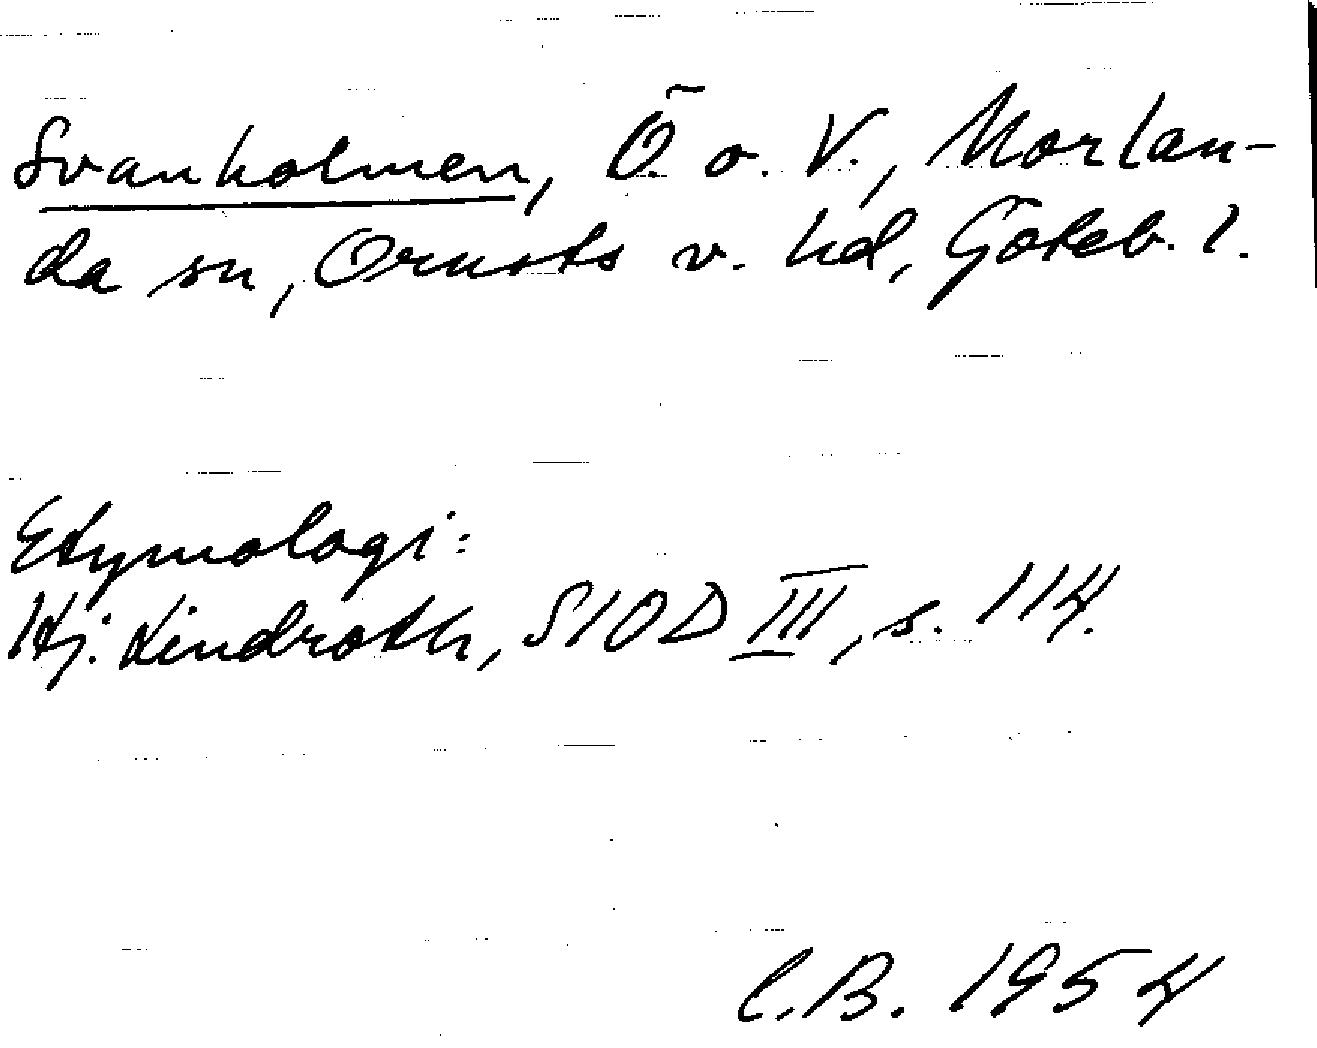 Svanholmen, Ö. o. V., Morlan-
da sn, Orusts v. hd, Göteb. l.
Etymologi:
Hj. Lindroth, SIOD III, s. 114.
C.B. 1954